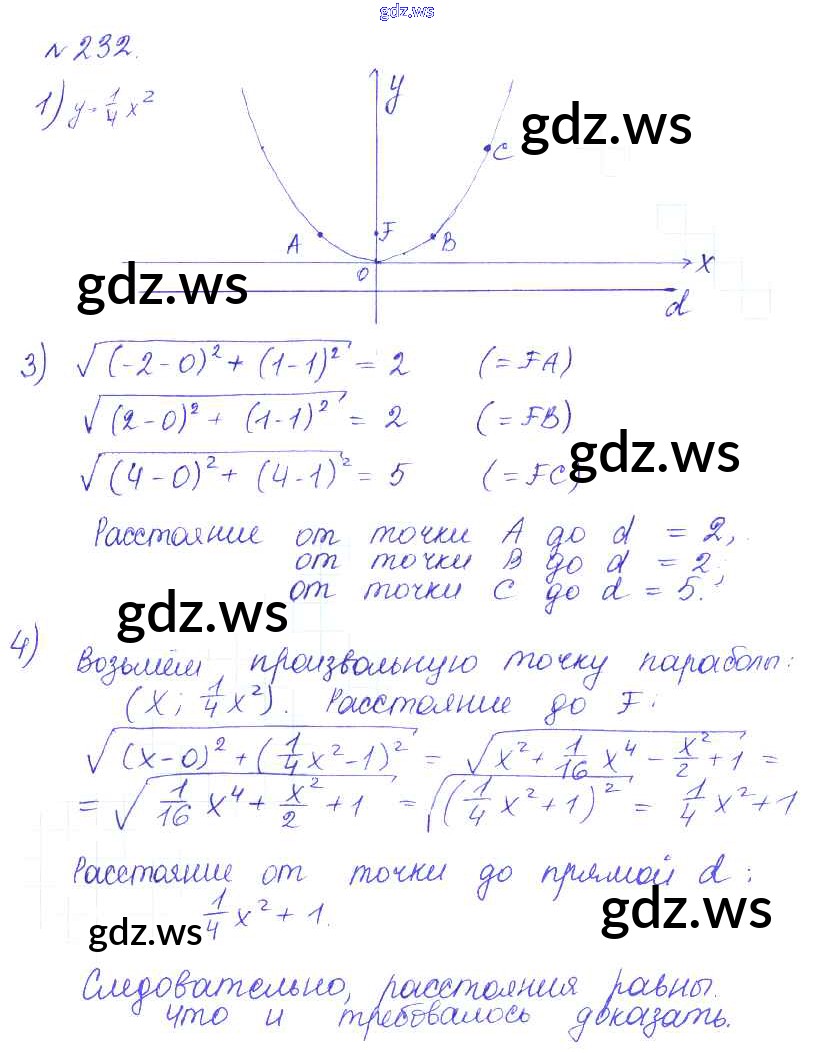 gdz.ws
№232.
1) y=1/4 x²
y
gdz.ws
C
A
F
B
gdz.ws
O
x
d
3) √((-2-0)²+(1-1)²) = 2 (=FA)
√((2-0)²+(1-1)²) = 2 (=FB)
gdz.ws
√((4-0)²+(4-1)²) = 5 (=FC)
Расстояние от точки A до d = 2,
от точки B до d = 2;
от точки C до d = 5.
gdz.ws
4) Возьмём произвольную точку параболы:
(x; 1/4 x²). Расстояние до F:
√((x-0)²+(1/4 x²-1)²) = √(x²+1/16 x⁴-x²/2+1) =
= √(1/16 x⁴+x²/2+1) = √((1/4 x²+1)²) = 1/4 x²+1
Расстояние от точки до прямой d:
1/4 x²+1.
gdz.ws
gdz.ws
Следовательно, расстояния равны.
что и требовалось доказать.